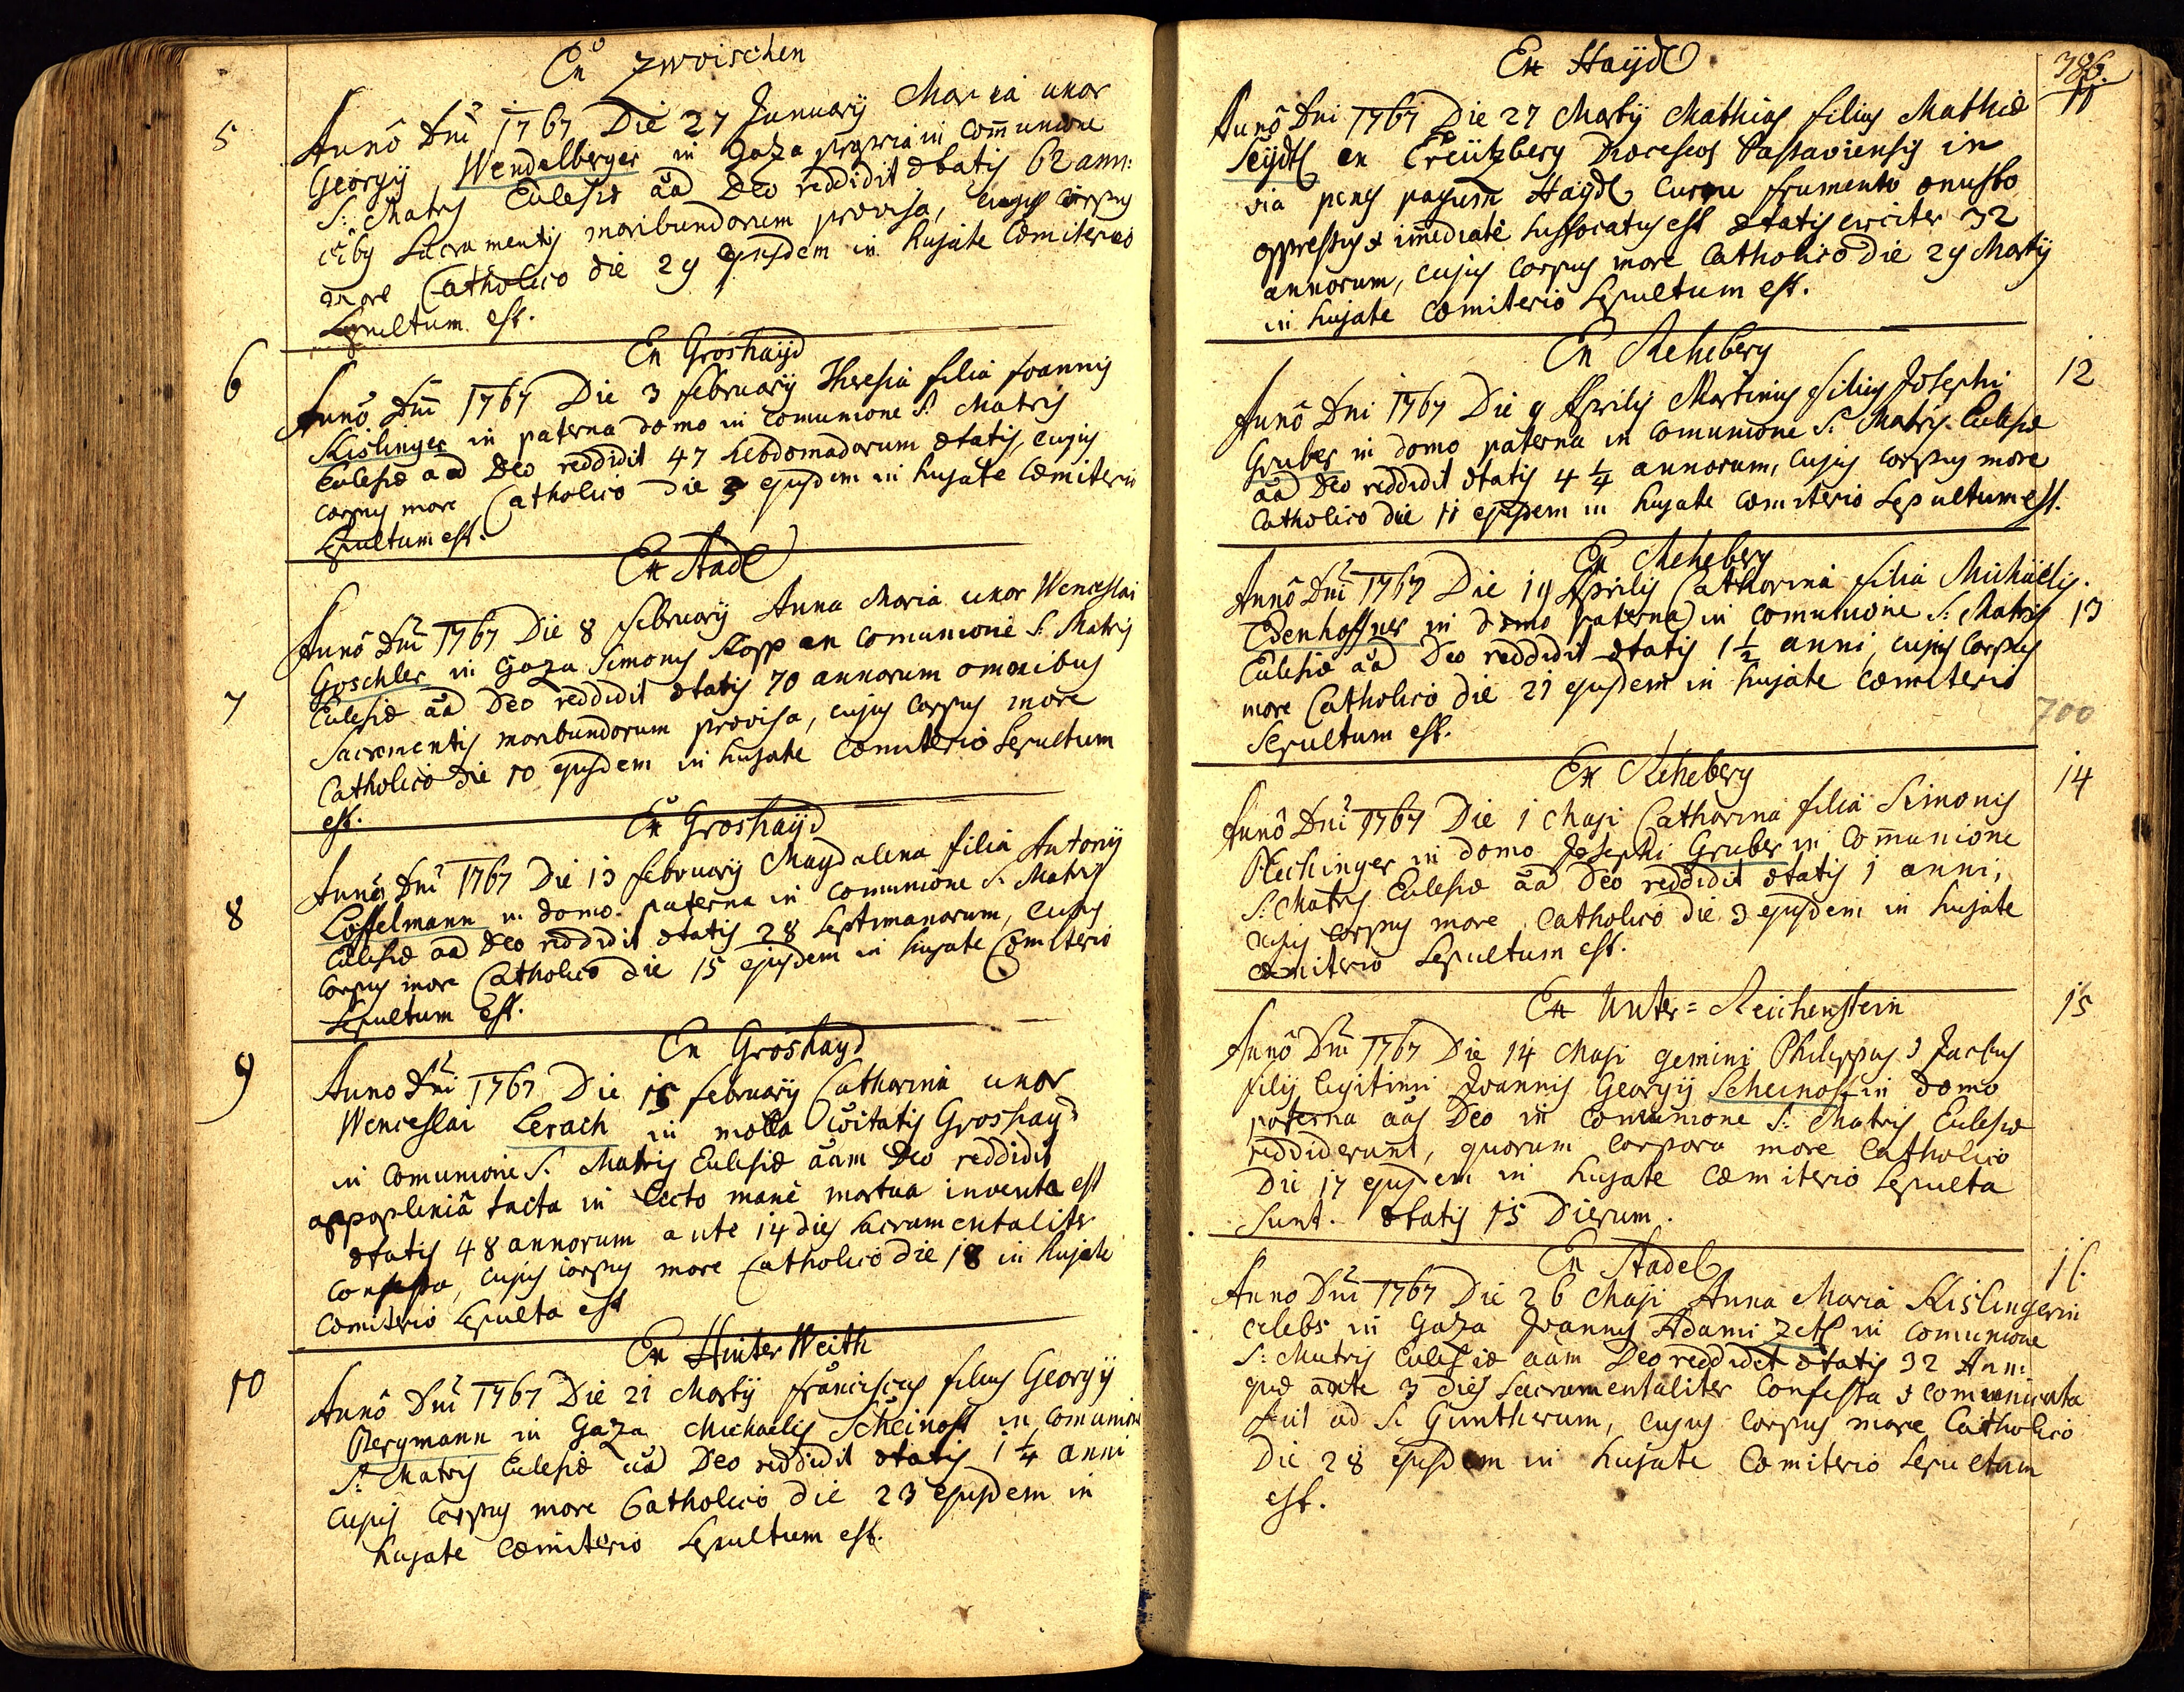 Ex Zwoischen
5
Anno Dni 1767 Die 27 January Maria uxor
Georgy Wendelberger in Gaza propria in Communione
S: Matris Eulesiæ aad Deo reddidit ætatis 62 ann:
oibg Sacramentis moribundorum provisa, cujus corpus
more Catholico die 29 ejusdem in hujate Cœmiterio
Sepultum est.
Ex Groshaijd
6
Anno Dni 1767 Die 3 february Theresia filia Joannis
Kislinger in paterna domo in Comunione S: Matris
Eulesiæ aad Deo reddidit 47 hebdomadarum ætatis, cujus
corpus more Catholico die 5 ejusdem in hujate Cœmiterio
Sepultum est.
Ex Stadl
7
Anno Dni 1767 Die 8 february Anna Maria uxor Wenceslai
Goschler in Gaza Simonis Kopp in Comunione S: Matris
Eulesiæ aad Deo reddidit ætatis 70 annorum omnibus
Sacramentis moribundorum provisa, cujus corpus more
Catholico die 10 ejusdem in hujate Cœmiterio Sepultum
est.
Ex Groshaijd
8
Anno Dni 1767 Die 13 february Magdalena filia Antony
Loffelmann in domo paterna in Comunione S: Matris
Eulesiæ aad Deo reddidit ætatis 28 Septimanarum, cujus
Corpus more Catholico die 15 ejusdem in hujate Cœmiterio
Sepultum est.
Ex Groshayd
9
Anno Dni 1767 Die 15 february Catharina uxor
Wenceslai Lerach in molla Coitatis Groshayd
in Comunione S. Matris Eulesiæ aam Deo reddidit
appoplexiâ tacta in lecto mane mortua inventa est
ætatis 48 annorum ante 14 dies Sacramentaliter
Confessa, cujus corpus more Catholico die 18 in hujate
Cœmiterio Sepulta est
Ex Hinter Weith
10
Anno Dni 1767 Die 21 Marty franciscus filius Georgy
Bergmann in Gaza Michaelis Scheinost in Comunione
S: Matris Eulesiæ aad Deo reddidit ætatis 1 1/4 anni
cujus corpus more Catholico die 23 ejusdem in
hujate Cœmiterio Sepultum est.
386.
Ex Hayd
11
Anno Dni 1767 Die 27 Marty Mathias filius Mathiæ
Seydl ex Creützberg Diœceseos Passaviensis in
via penes pagum Haydl curru frumento onusto
oppressus & imediatè suffocatus est ætatis circiter 32
annorum, cujus Corpus more Catholico die 29 Marty
in hujate Cœmiterio Sepultum est.
Ex Reheberg
12
Anno Dni 1767 Die 9 Aprilis Martinus filius Josephi
Gruber in domo paterna in Comunione S: Matris Eulesiæ
aad Deo reddidit ætatis 4 1/4 annorum, cujus corpus more
Catholico die 11 ejusdem in hujate Cœmiterio Sepultum est.
Ex Reheberg
Anno Dni 1767 Die 19 Aprilis Catharina filia Michaelis
13
Edenhoffner in domo paterna in Comunione S: Matris
Eulesiæ aad Deo reddidit ætatis 1 1/2 anni, cujus Corpus
more Catholico die 21 ejusdem in hujate Cœmiterio
700
Sepultum est.
Ex Reheberg
14
Anno Dni 1767 Die 1 Maji Catharina filia Simonis
Plechinger in domo Josephi Gruber in Communione
S: Matris Eulesiæ aad Deo reddidit ætatis 1 anni;
cujus corpus more Catholico die 3 ejusdem in hujate
Cœmiterio Sepultum est.
Ex Unter=Reichenstein
15
Anno Dni 1767 Die 14 Maji gemini Philippus & Jacobus
filij legitimi Joannis Georgy Scheinost in domo
paterna aas Deo in Comunione S: Matris Eulesiæ
reddiderunt, quorum Corpora more Catholico
Die 17 ejusdem in hujate Cœmiterio Sepulta
Sunt. ætatis 15 Dierum.
Ex Stadel
16.
Anno Dni 1767 Die 26 Maji Anna Maria Kislingerin
cælebs in Gaza Joannis Adami Zetl in Comunione
S: Matris Eulesiæ aam Deo reddidit ætatis 32 Ann:
quæ ante 3 dies Sacramentaliter Confessa & comunicata
fuit ad S. Guntherum, cujus corpus more Catholico
Die 28 ejusdem in hujate Cœmiterio Sepultum
est.